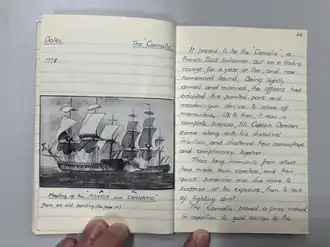 Dates
The "Carnatic"
1778
Meeting of the "MENTOR and CARNATIC"
from an old painting (See page 19)
It proved to be the "Carnatic", a
French East Indiaman, out on a trading
voyage for a year or two, and now
homeward bound. Being lightly
armed and manned, the officers had
adopted this painted port and
wooden gun device to scare off
marauders. Up to then, it was in
complete disguise, till Captain Dawson
came along with his disbelief
intuition, and shattered their camouflage
and complacency together.
Their long immunity from attack
had made them careless, and their
quick surrender was due more to
surprise at the exposure, than to lack
of fighting spirit.
The "Carnatic" proved a prize indeed